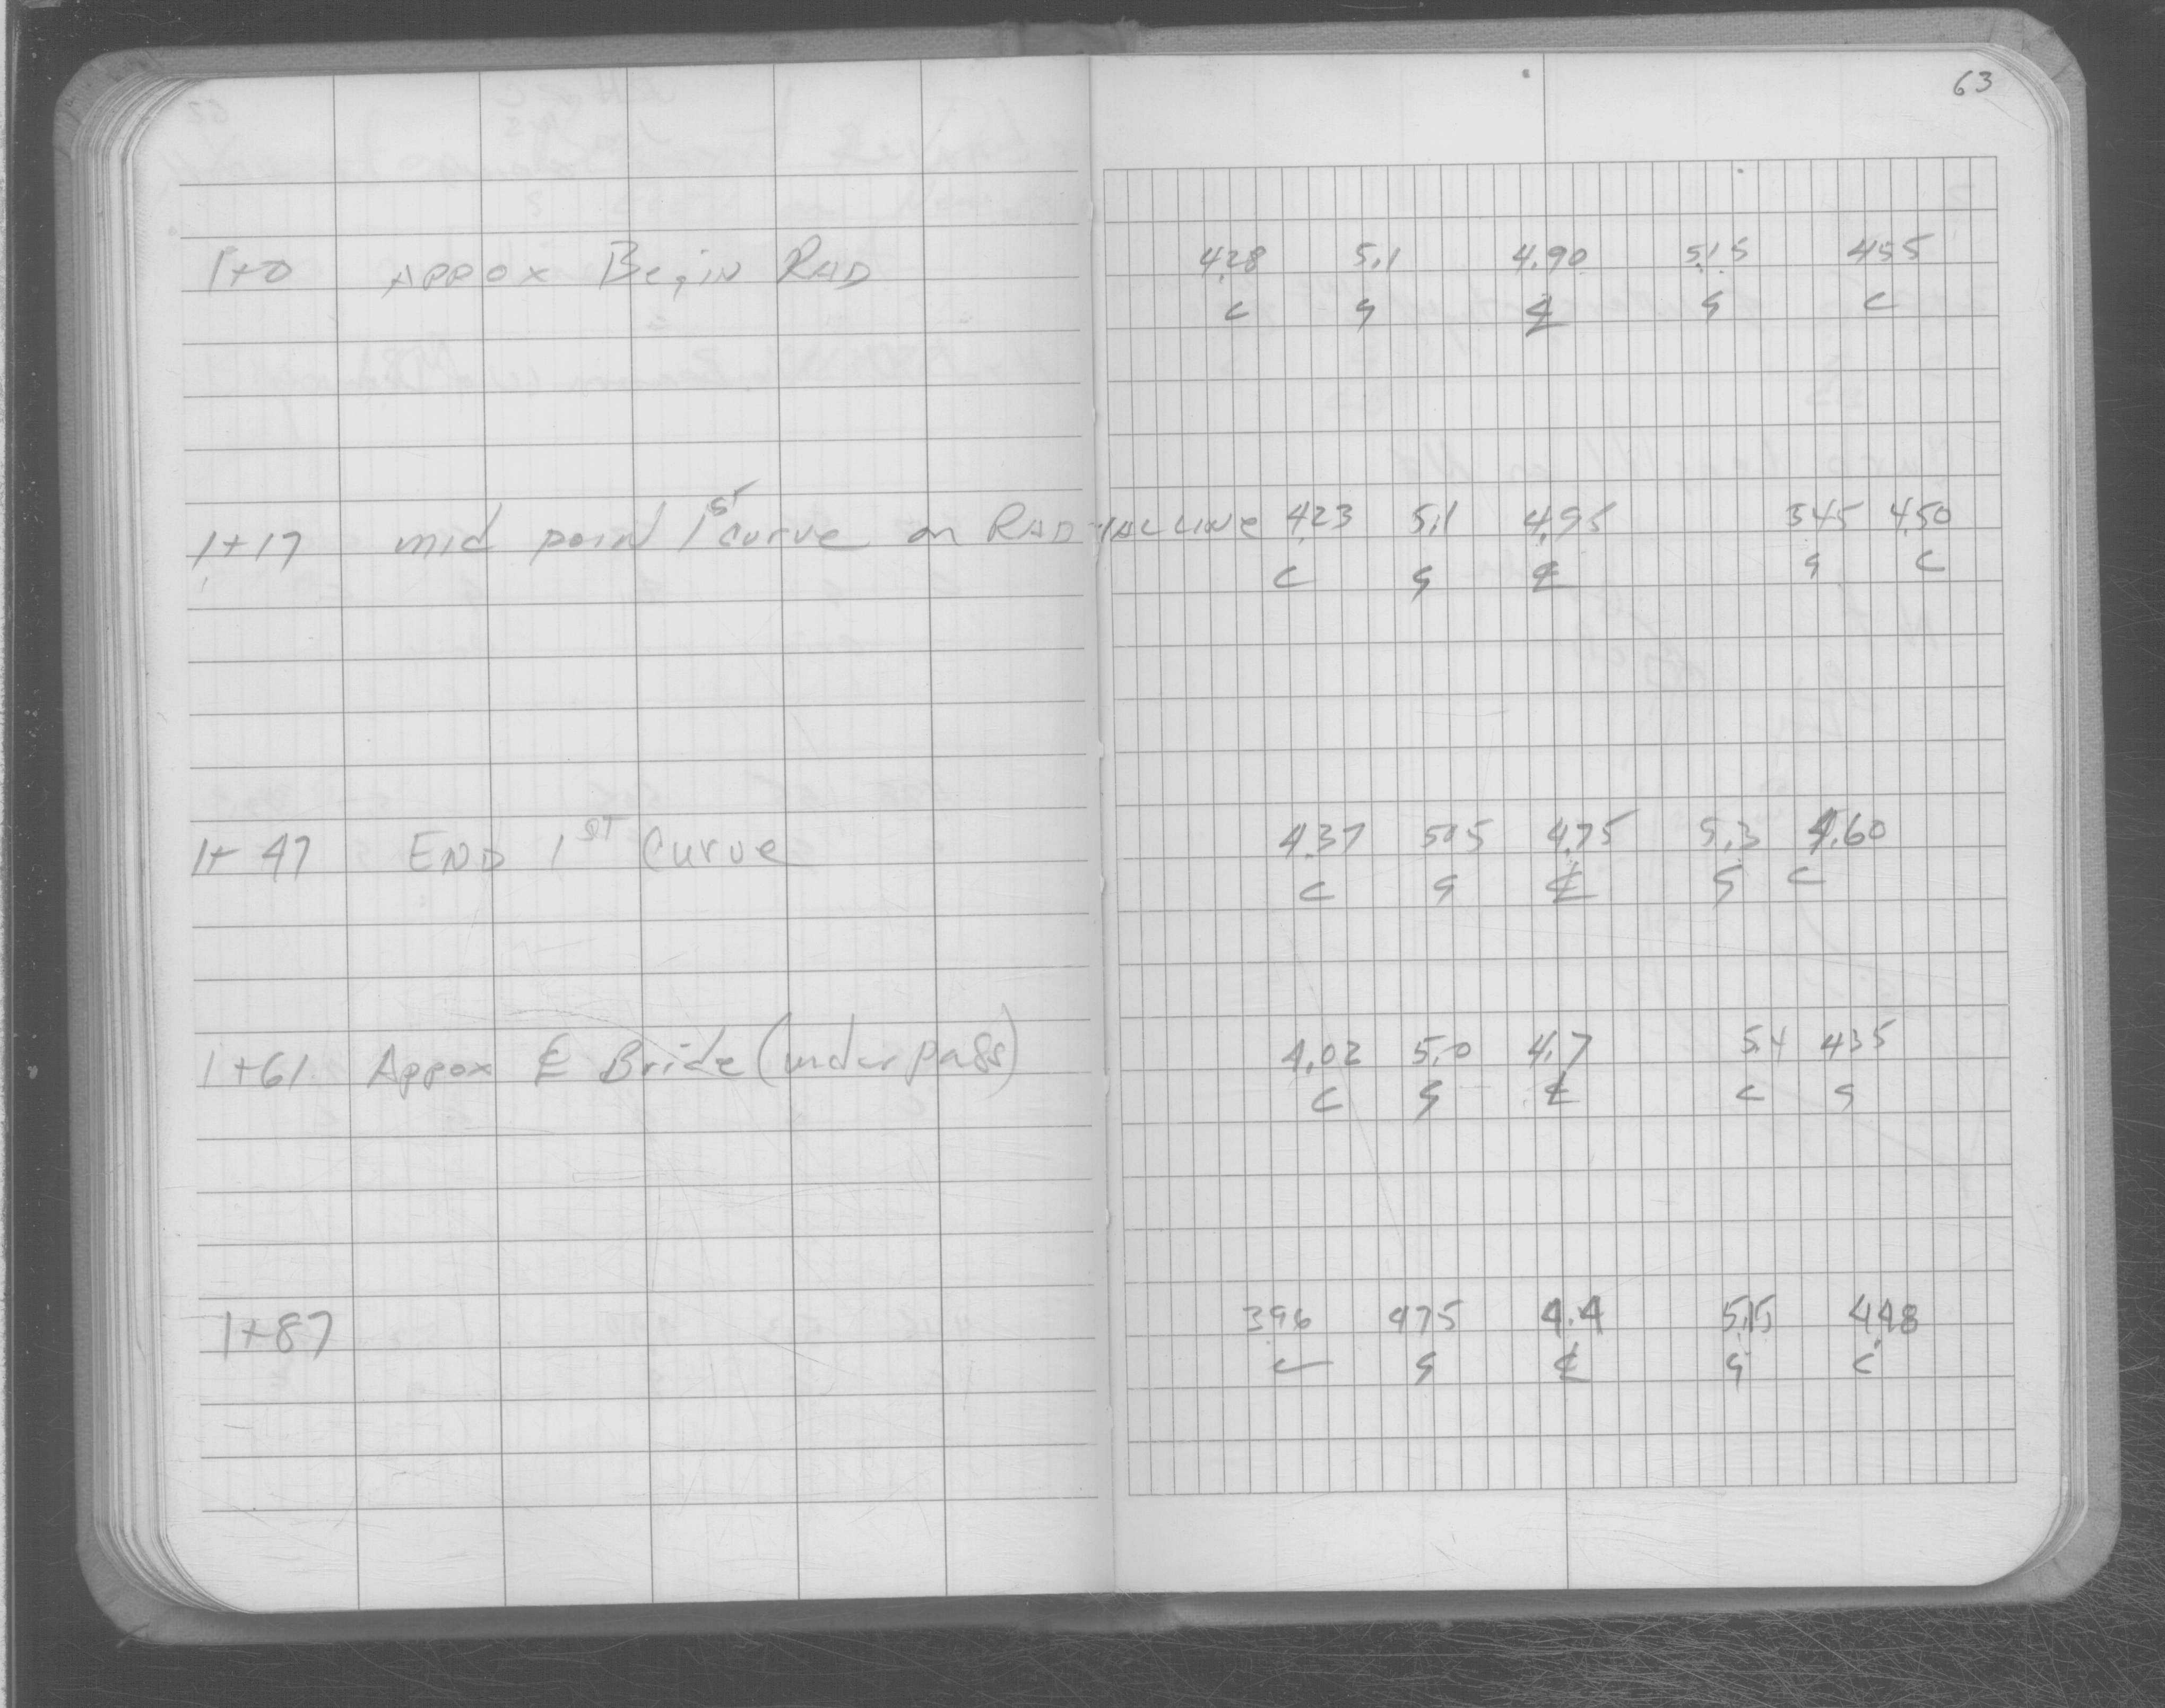 63
1+0 Appox Begin RAD 4.28 5.1 4.90 5.15 455
C G ℄ G C
1+17 mid point 1st curve on RADIAL LINE 4.23 5.1 4.95 545 4.50
C G ℄ G C
1+47 END 1ST Curve 4.37 505 4.75 5.3 4.60
C G ℄ G C
1+61 Appox ℄ Bride (underpass) 4.02 5.0 4.7 5.4 435
C G ℄ C G
1+87 3.96 475 4.4 5.15 4.48
C G ℄ G C